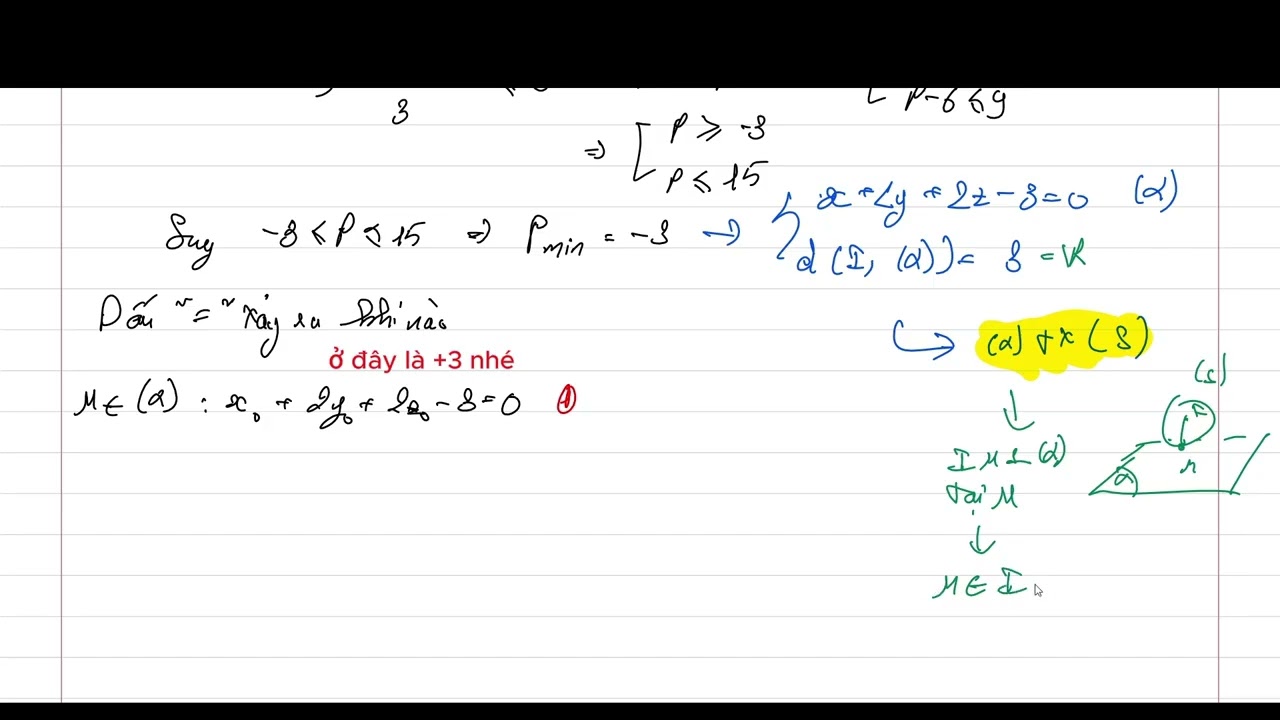 3
P - 6 ≤ 9
⇒ [ P ≥ -3
P ≤ 15
Suy -3 ≤ P ≤ 15 ⇒ Pmin = -3 → { x + 2y + 2z - 3 = 0 (α)
d(I, (α)) = 3 = R
Dấu "=" xảy ra khi nào
↪ (α) tx (S)
ở đây là +3 nhé
M ∈ (α) : x₀ + 2y₀ + 2z₀ - 3 = 0 ①
(S)
R
α
M
↓
IM ⊥ (α)
tại M
↓
M ∈ I